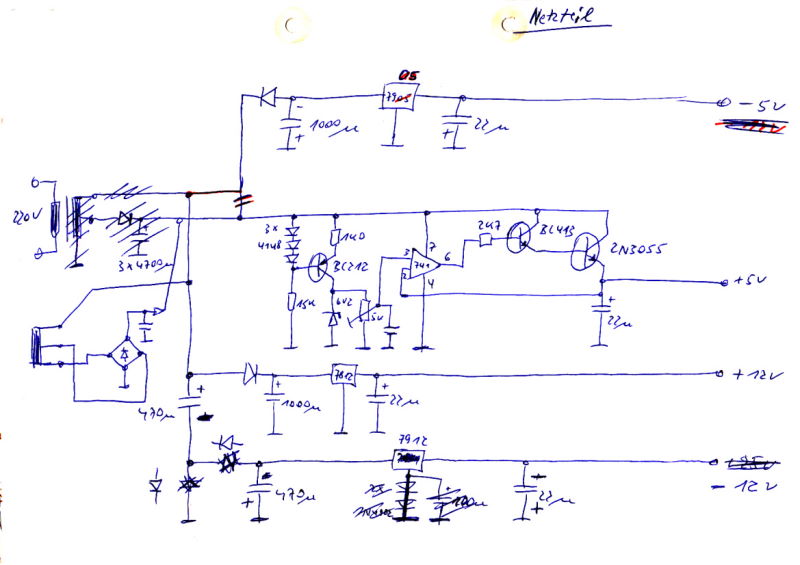 Netzteil
05
1000µ
22µ
-5V
220V
3x4700µ
3x
4148
1k0
BC212
15k
6V2
5k
741
3
2
7
6
4
2k7
BC413
2N3055
+5V
22µ
470µ
1000µ
7812
22µ
+12V
470µ
7912
22µ
-12V